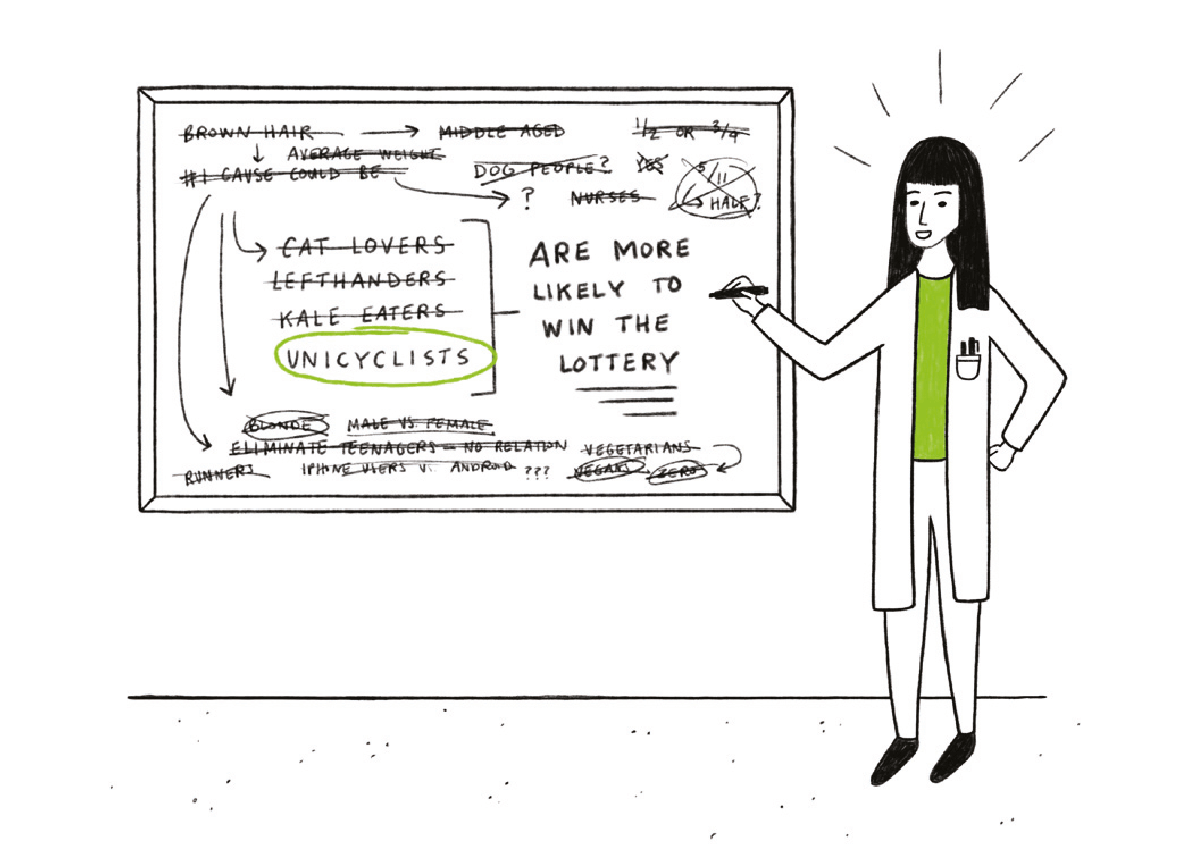 BROWN HAIR → MIDDLE AGED 1/2 OR 3/4
↓ AVERAGE WEIGHT
#1 CAUSE COULD BE DOG PEOPLE? YES 5/11
? NURSES IS HALF?
CAT LOVERS
LEFTHANDERS
KALE EATERS
UNICYCLISTS
ARE MORE
LIKELY TO
WIN THE
LOTTERY
BLONDE MALE VS. FEMALE
ELIMINATE TEENAGERS - NO RELATION VEGETARIANS
RUNNERS IPHONE USERS V. ANDROID ??? VEGANS ZERO